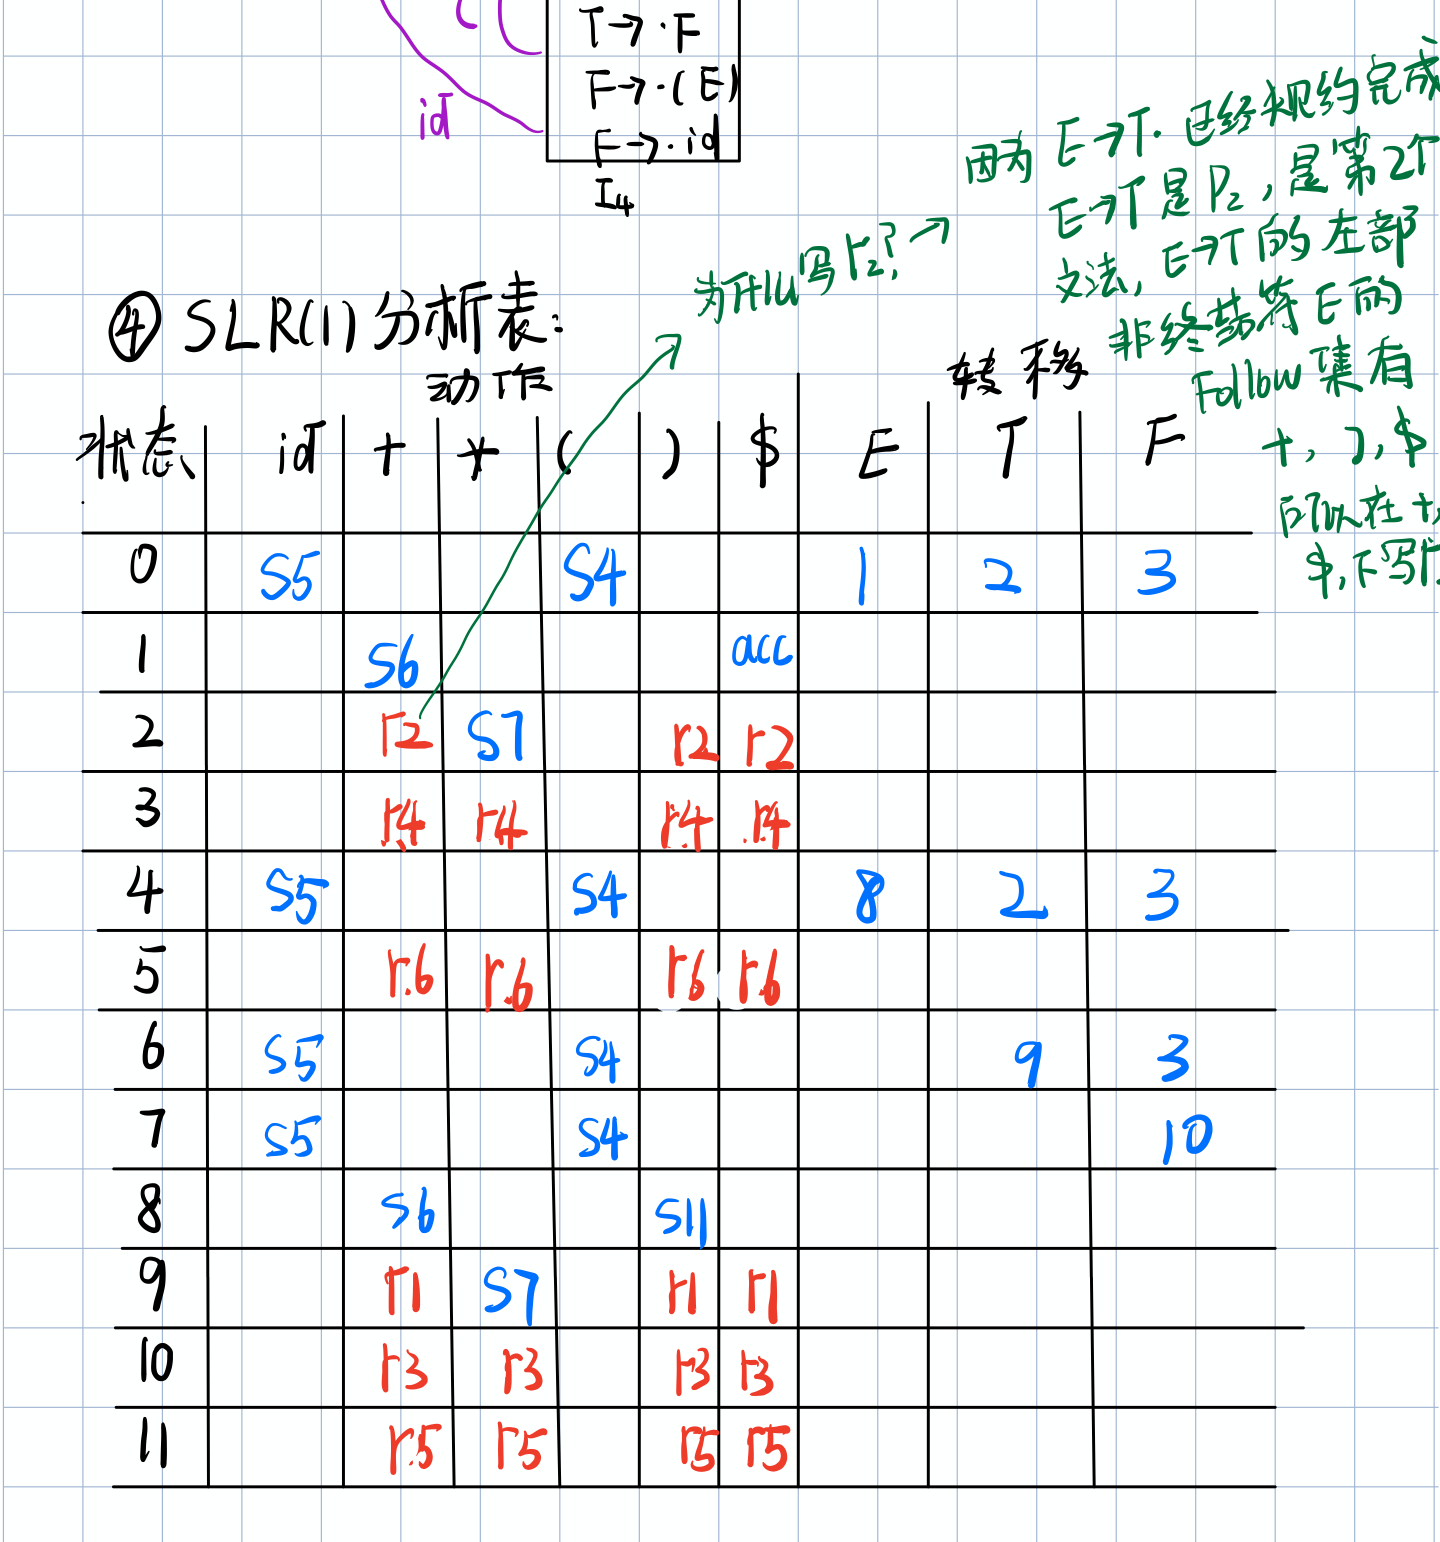 T→·F
F→·(E)
F→·id
I₄
id
因为 E→T·已经规约完成
E→T是P₂,是第2个
文法,E→T的左部
非终结符E的
Follow集有
+,),$
所以在+,
$,下写r
为什么写r2?→
④ SLR(1)分析表:
动作 转移
状态 id + * ( ) $ E T F
0 S5 S4 1 2 3
1 S6 acc
2 r2 S7 r2 r2
3 r4 r4 r4 r4
4 S5 S4 8 2 3
5 r6 r6 r6 r6
6 S5 S4 9 3
7 S5 S4 10
8 S6 S11
9 r1 S7 r1 r1
10 r3 r3 r3 r3
11 r5 r5 r5 r5